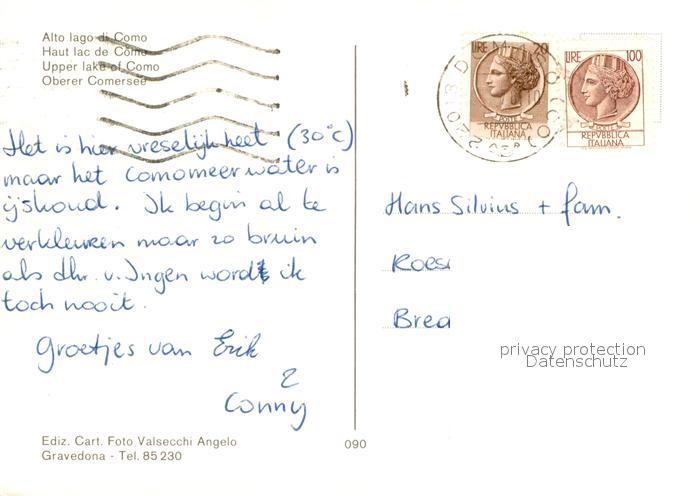 Alto lago di Como
Haut lac de Côme
Upper lake of Como
Oberer Comersee
Het is hier vreselijk heet (30°C)
maar het comomeer water is
ijskoud. Ik begin al te
verkleuren maar zo bruin
als dhr. v. Ingen word ik
toch nooit.
Groetjes van Erik
2
Conny
Ediz. Cart. Foto Valsecchi Angelo
Gravedona - Tel. 85 230
090
LIRE 20
POSTE
REPVBBLICA
ITALIANA
LIRE 100
POSTE
REPVBBLICA
ITALIANA
Hans Silvius + fam.
Roes
Breda
privacy protection
Datenschutz